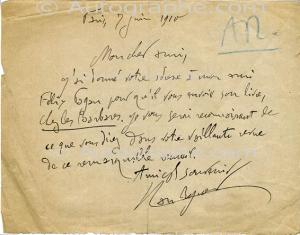 Paris, 7 juin 1910
AR
Mon cher ami,
j'ai donné votre adresse à mon ami
pour qu'il vous envoie son livre,
chez les Barbares. Je vous serai reconnaissant de
ce que vous direz dans votre vaillante revue
de ce remarquable
Amical souvenir